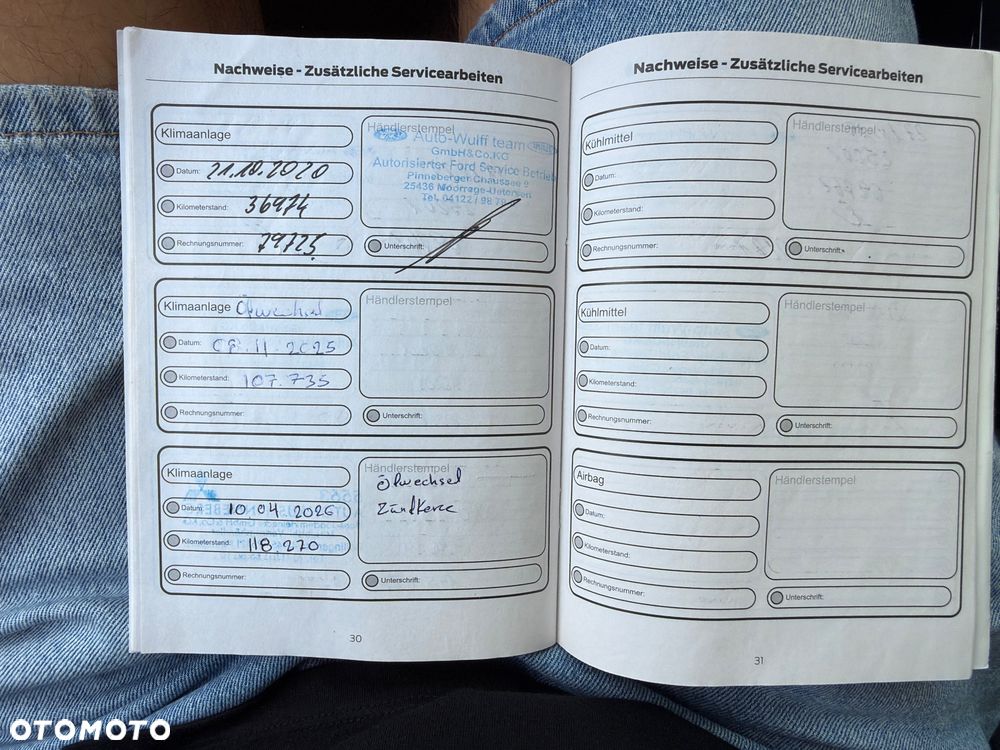 Nachweise - Zusätzliche Servicearbeiten
Klimaanlage
Datum: 21.10.2020
Kilometerstand: 36974
Rechnungsnummer: 79725
Händlerstempel
Auto-Wulff team
GmbH&Co.KG
Autorisierter Ford Service Betrieb
Pinneberger Chaussee
25436 Moorrege-Uetersen
Tel. 04122 / 98 79
Unterschrift:
Klimaanlage Ölwechsel
Datum: 08.11.2025
Kilometerstand: 107.735
Rechnungsnummer:
Händlerstempel
Unterschrift:
Klimaanlage
Datum: 10 04 2026
Kilometerstand: 118 270
Rechnungsnummer:
Händlerstempel
Ölwechsel
Zündkerze
Unterschrift:
30
Nachweise - Zusätzliche Servicearbeiten
Kühlmittel
Datum:
Kilometerstand:
Rechnungsnummer:
Händlerstempel
Unterschrift:
Kühlmittel
Datum:
Kilometerstand:
Rechnungsnummer:
Händlerstempel
Unterschrift:
Airbag
Datum:
Kilometerstand:
Rechnungsnummer:
Händlerstempel
Unterschrift:
31
OTOMOTO